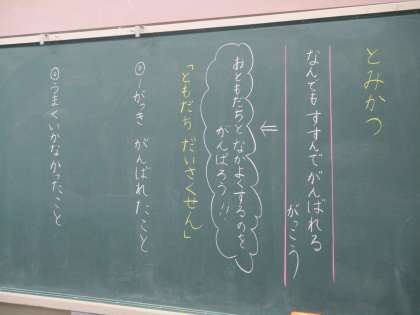 とみかつ
なんでも すすんで がんばれる
がっこう
⇐
おともだちと なかよくするのを
がんばろう!!
「ともだち だいさくせん」
◎1がっき がんばれたこと
◎うまくいかなかったこと